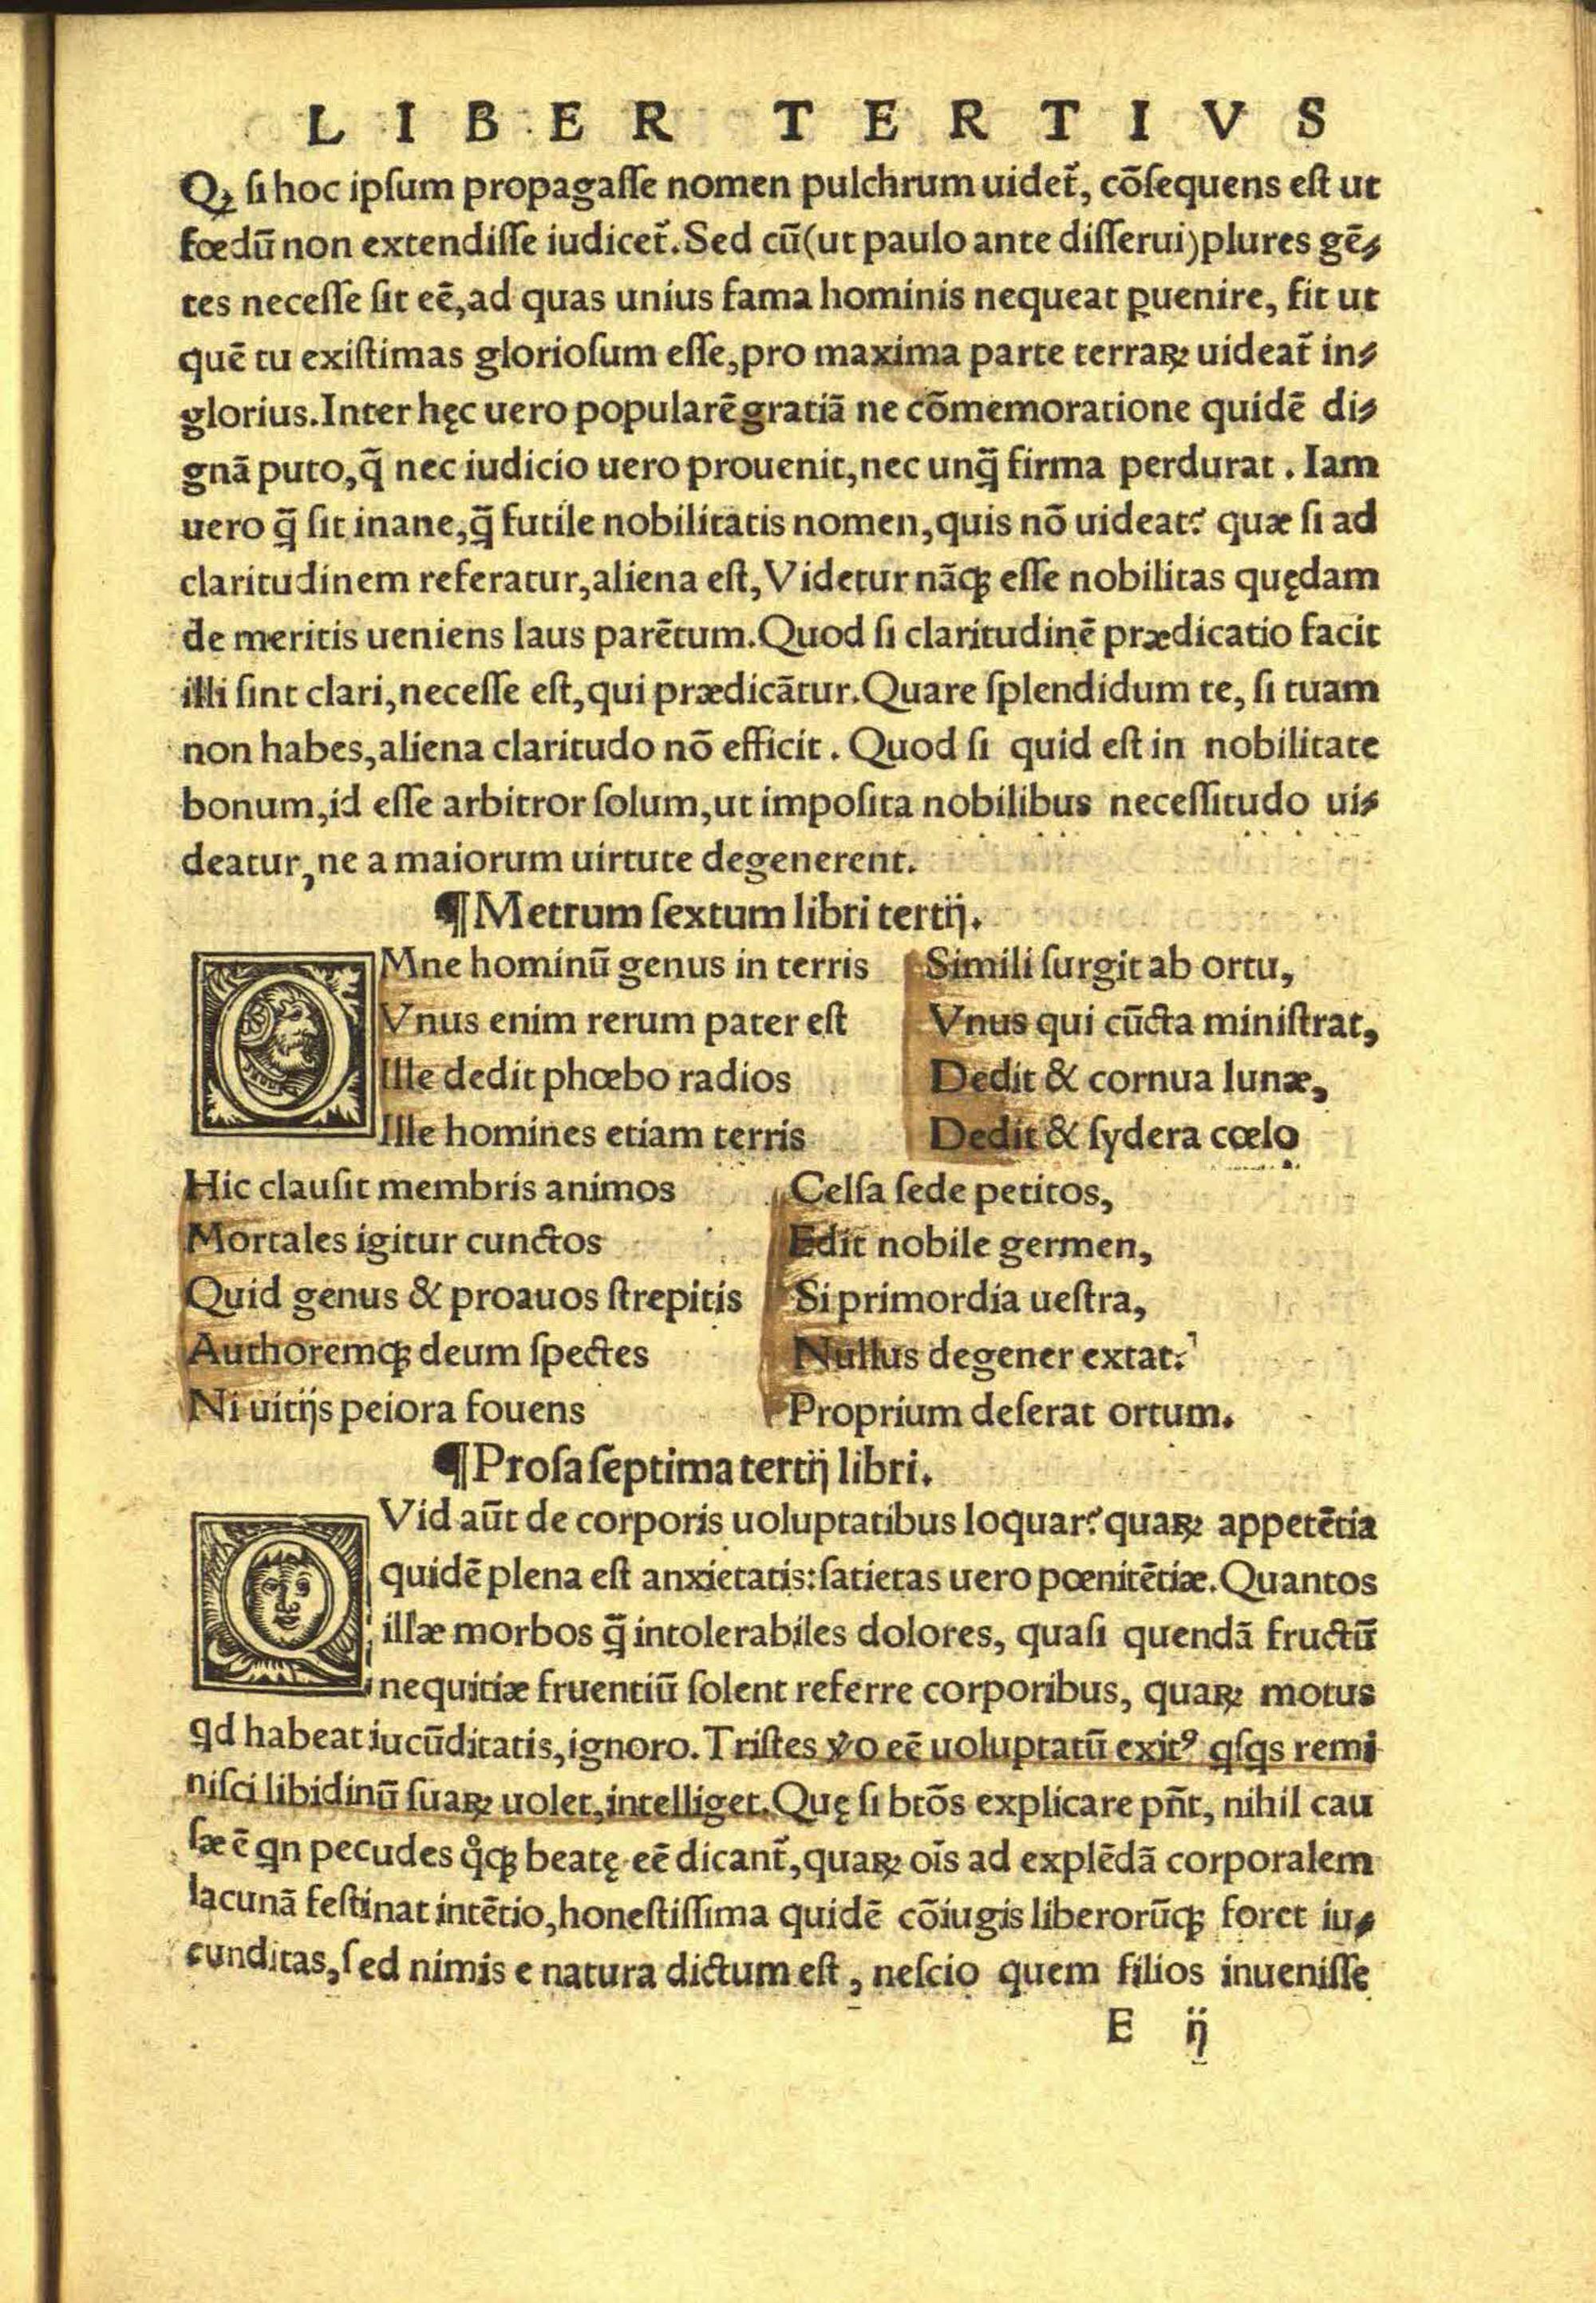 LIBER TERTIVS
Qꝫ ſi hoc ipſum propagaſſe nomen pulchrum uidet̃, cõſequens eſt ut
fœdũ non extendiſſe iudicet̃. Sed cũ (ut paulo ante diſſerui) plures gẽ⸗
tes neceſſe ſit eẽ, ad quas unius fama hominis nequeat ꝑuenire, fit ut
quẽ tu exiſtimas glorioſum eſſe, pro maxima parte terraꝝ uideat̃ in⸗
glorius. Inter hęc uero popularẽ gratiã ne cõmemoratione quidẽ di⸗
gnã puto, q̃ nec iudicio uero prouenit, nec unq̃ firma perdurat. Iam
uero q̃ ſit inane, q̃ futile nobilitatis nomen, quis nõ uideat? quæ ſi ad
claritudinem referatur, aliena eſt, Videtur nãqꝫ eſſe nobilitas quędam
de meritis ueniens laus parẽtum. Quod ſi claritudinẽ prædicatio facit
illi ſint clari, neceſſe eſt, qui prædicãtur. Quare ſplendidum te, ſi tuam
non habes, aliena claritudo nõ efficit. Quod ſi quid eſt in nobilitate
bonum, id eſſe arbitror ſolum, ut impoſita nobilibus neceſſitudo ui⸗
deatur, ne a maiorum uirtute degenerent.
¶ Metrum ſextum libri tertij.
OMne hominũ genus in terris Simili ſurgit ab ortu,
Vnus enim rerum pater eſt Vnus qui cũcta miniſtrat,
Ille dedit phœbo radios Dedit & cornua lunæ,
Ille homines etiam terris Dedit & ſydera cœlo
Hic clauſit membris animos Celſa ſede petitos,
Mortales igitur cunctos Edit nobile germen,
Quid genus & proauos ſtrepitis Si primordia ueſtra,
Authoremqꝫ deum ſpectes Nullus degener extat?
Ni uitijs peiora fouens Proprium deſerat ortum.
¶ Proſa ſeptima tertij libri.
QVid aũt de corporis uoluptatibus loquar? quaꝝ appetẽtia
quidẽ plena eſt anxietatis: ſatietas uero pœnitẽtiæ. Quantos
illæ morbos q̃ intolerabiles dolores, quaſi quendã fructũ
nequitiæ fruentiũ ſolent referre corporibus, quaꝝ motus
qd habeat iucũditatis, ignoro. Triſtes v̊o eẽ uoluptatũ exitꝰ qſqs remi
niſci libidinũ ſuaꝝ uolet, intelliget. Quę ſi btõs explicare pñt, nihil cau
ſæ ẽ qn pecudes q̊qꝫ beatę eẽ dicant̃, quaꝝ oĩs ad explẽdã corporalem
lacunã feſtinat intẽtio, honeſtiſſima quidẽ cõiugis liberorũqꝫ foret iu⸗
cunditas, ſed nimis e natura dictum eſt, neſcio quem filios inueniſſe
E ij